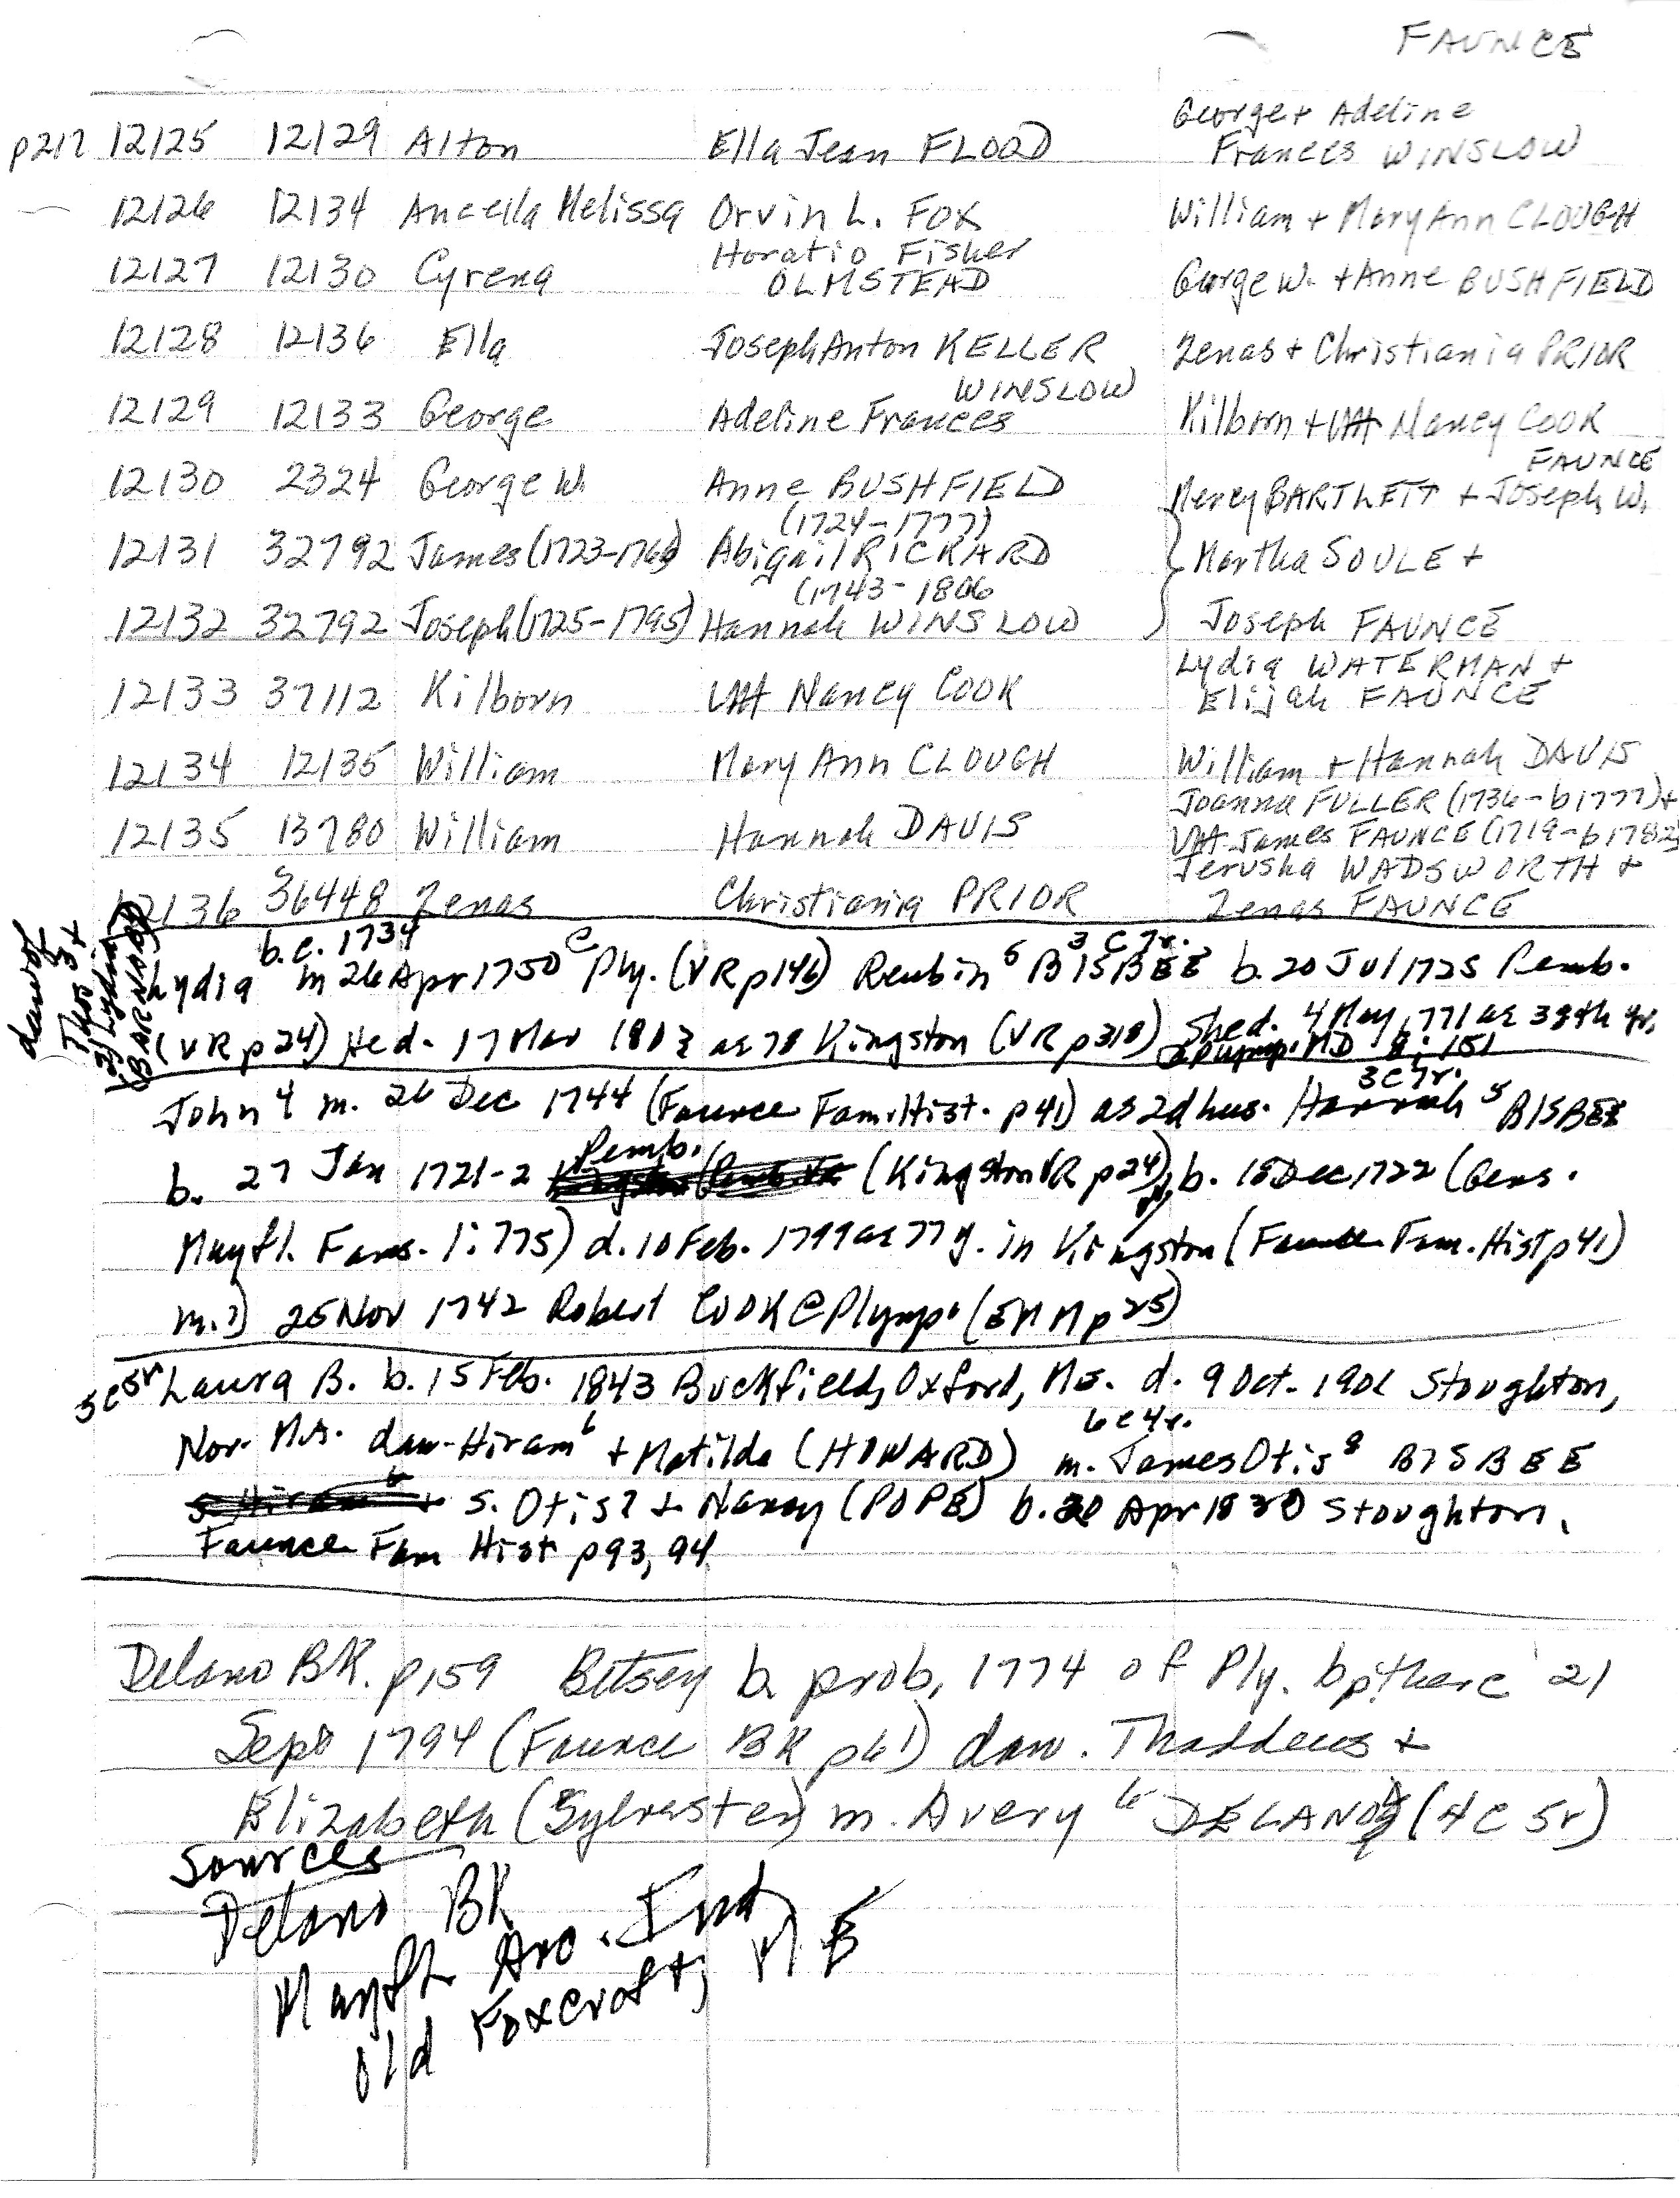 FAUNCE
George + Adeline
p217 12125 12129 Alton Ella Jean FLOOD Frances WINSLOW
12126 12134 Ancella Melissa Orvin L. FOX William + Mary Ann CLOUGH
Horatio Fisher
12127 12130 Cyrena OLMSTEAD George W. + Anne BUSHFIELD
12128 12136 Ella Joseph Anton KELLER Zenas + Christiania PRIOR
WINSLOW
12129 12133 George Adeline Frances Kilborn + Nancy COOK
FAUNCE
12130 2324 George W. Anne BUSHFIELD Mercy BARTLETT + Joseph W.
(1724-1777)
12131 32792 James (1723-1766) Abigail RICKARD Martha SOULE +
(1743-1806
12132 32792 Joseph (1725-1795) Hannah WINSLOW Joseph FAUNCE
Lydia WATERMAN +
12133 37112 Kilborn Nancy COOK Elijah FAUNCE
12134 12135 William Mary Ann CLOUGH William + Hannah DAVIS
Joanna FULLER (1736-b1777) +
12135 13780 William Hannah DAVIS James FAUNCE (1719-b1782)
Jerusha WADSWORTH +
12136 36448 Zenas Christiania PRIOR Zenas FAUNCE
dau of
Thos 3 +
2) Lydia
(BARNABY)
b.c. 1734 3C7r.
Lydia m 26 Apr 1750 @ Ply. (VR p146) Reubin 5 BISBEE b. 20 Jul 1725 Pemb.
(VR p24) He d. 17 Mar 1803 ae 78 Kingston (VR p318) She d. 4 May 1771 ae 38th yr.
@ Plymp. MD 8:151
3C7r.
John 4 m. 26 Dec 1744 (Faunce Fam. Hist. p41) as 2d hus. Hannah 5 BISBEE
Pemb.
b. 27 Jan 1721-2 (Kingston VR p24), b. 18 Dec 1722 (Gens.
Mayfl. Fams. 1:775) d. 10 Feb. 1799 ae 77 y. in Kingston (Faunce Fam. Hist p41)
m.1) 25 Nov 1742 Robert COOK @ Plymp. (EMM p25)
5C5r Laura B. b. 15 Feb. 1843 Buckfield, Oxford, Me. d. 9 Oct. 1901 Stoughton,
6C4r.
Nor. MA. dau. Hiram 6 + Matilda (HOWARD) m. James Otis 8 BISBEE
s. Hiram 6 + s. Otis 7 + Nancy (POPE) b. 20 Apr 1830 Stoughton.
Faunce Fam Hist p93, 94
Delano BK. p159 Betsey b. prob. 1774 of Ply. bp there 21
Sept 1794 (Faunce BK p61) dau. Thaddeus +
Elizabeth (Sylvester) m. Avery 6 DELANO (4C5r)
Sources
Delano BK
Mayfl. Ind
Old Foxcroft, ME